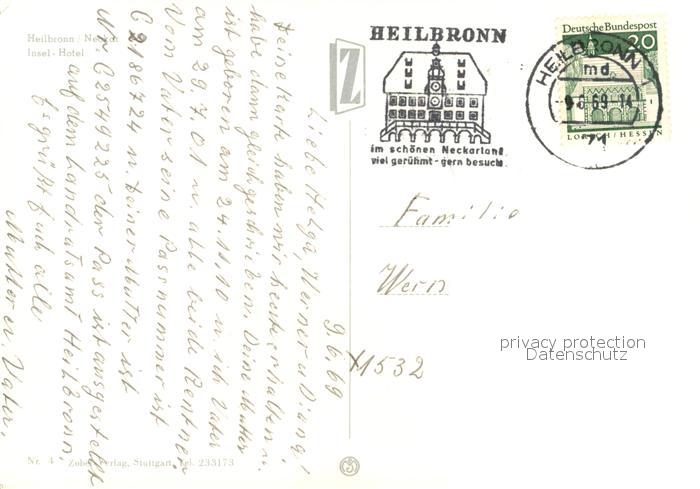 Heilbronn / Neckar
Insel-Hotel
9.6.69
Liebe Helga, Werner u. Diana!
Deine Karte haben wir heute erhalten u.
habe dann gleich geschrieben. Deine Mutter
ist geboren am 24.11.10 u. ich Vater
am 29.7.01 u. alle beide Rentner
Vom Vater seine Passnummer ist
C 2186724 u. Deiner Mutter ist
Nr C 2549225 der Pass ist ausgestellt
auf dem Landratsamt Heilbronn
Es grüßt Euch alle
Mutter u. Vater.
Nr. 4 Zobel-Verlag, Stuttgart, Tel. 233173
Z
HEILBRONN
im schönen Neckarland
viel gerühmt - gern besucht
HEILBRONN
md
-9.6.69.-14
71
Deutsche Bundespost
20
LORSCH / HESSEN
Familie
Wern
X1532
privacy protection
Datenschutz